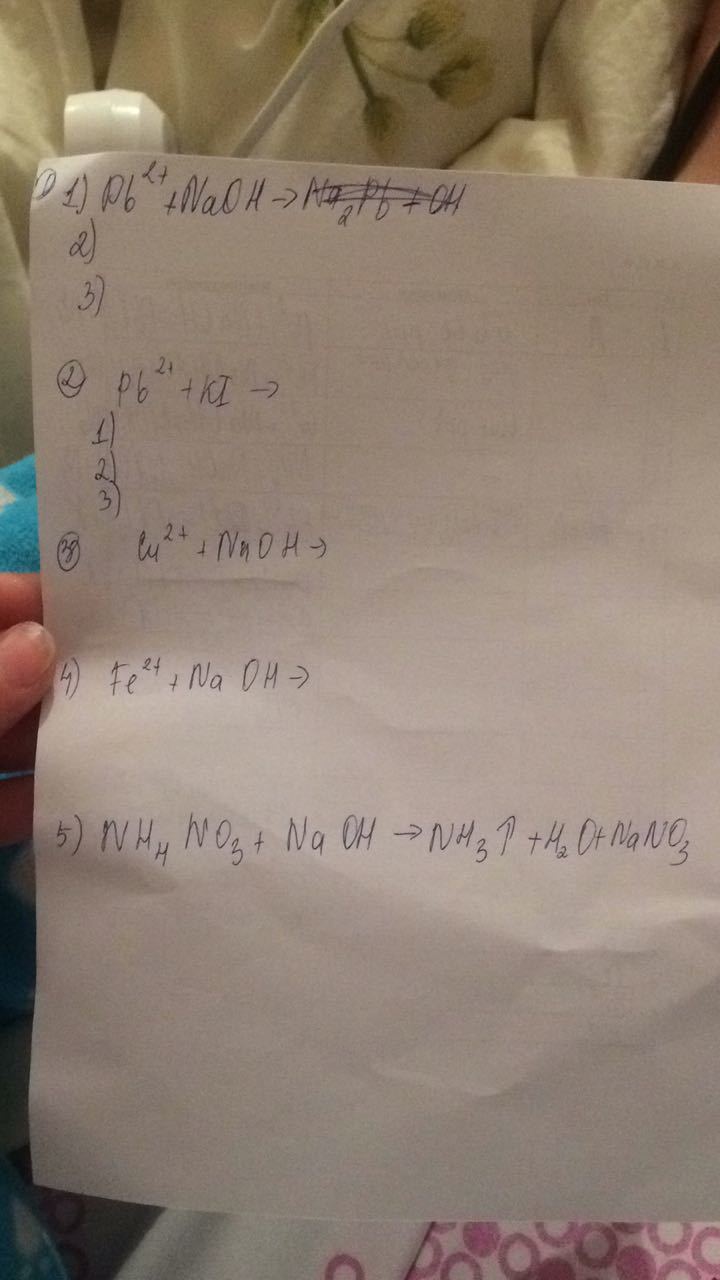 ① 1) Pb²⁺ + NaOH → Na₂Pb + OH
2)
3)
② Pb²⁺ + KI →
1)
2)
3)
③ Cu²⁺ + NaOH →
4) Fe²⁺ + NaOH →
5) NH₄NO₃ + NaOH → NH₃↑ + H₂O + NaNO₃